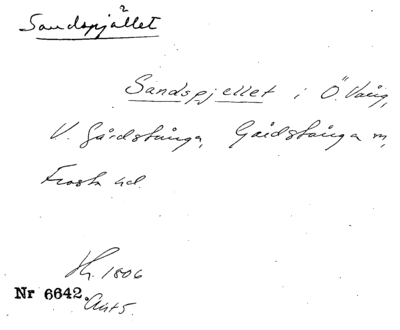 Sandspjället
2
Sandspjellet i Ö. Vång,
V. Gårdstånga, Gårdstånga sn,
Frosta hd.
Hy. 1806
Nr 6642. Akt 5.